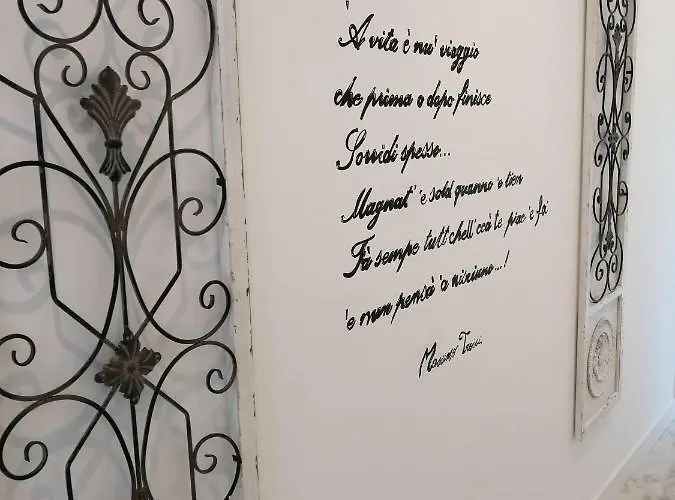 A vita è nu' viaggio
che prima o dopo finisce
Sorridi spesso...
Magnat' 'e sold quanno 'e tien
Fà sempe tutt chell' ccà te piac 'e fà
'e nun penzà 'a nisciuno...!
Massimo Troisi